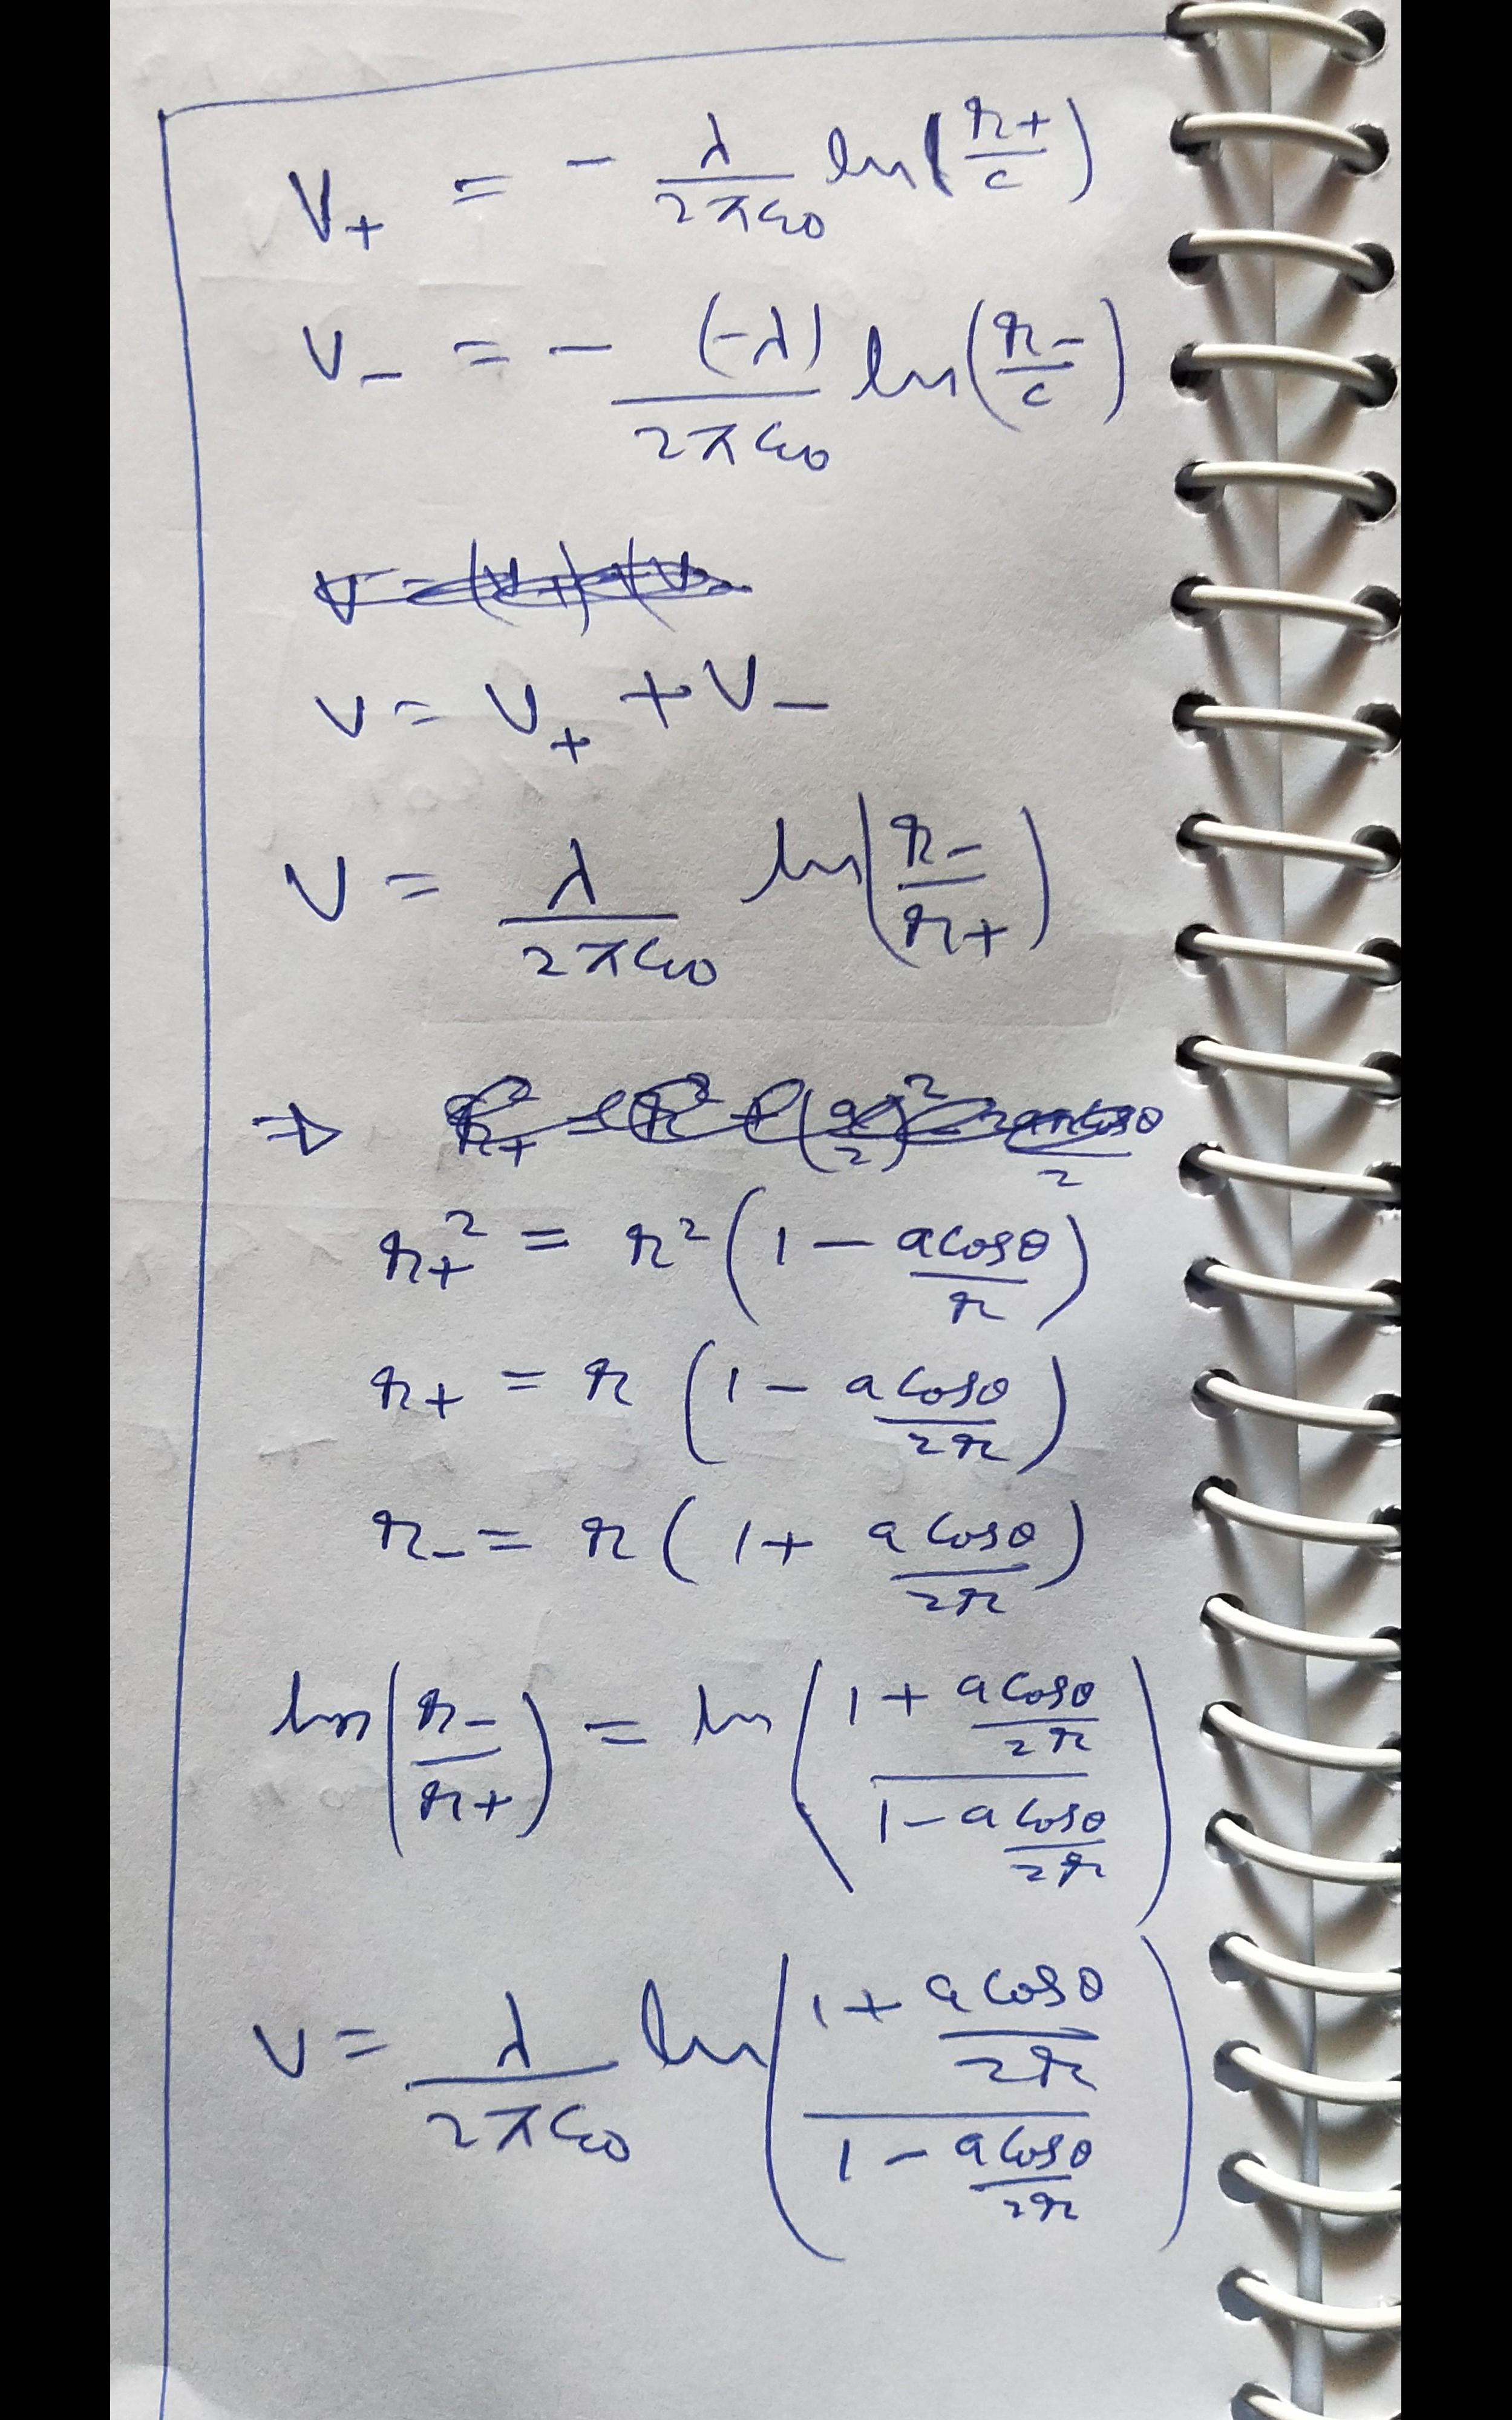 V₊ = - λ/2πε₀ ln(r₊/c)
V₋ = - (-λ)/2πε₀ ln(r₋/c)
V = V₊ + V₋
V = λ/2πε₀ ln(r₋/r₊)
⇒
r₊² = r²(1 - acosθ/r)
r₊ = r (1 - acosθ/2r)
r₋ = r (1 + acosθ/2r)
ln(r₋/r₊) = ln((1 + acosθ/2r)/(1 - acosθ/2r))
V = λ/2πε₀ ln((1 + acosθ/2r)/(1 - acosθ/2r))